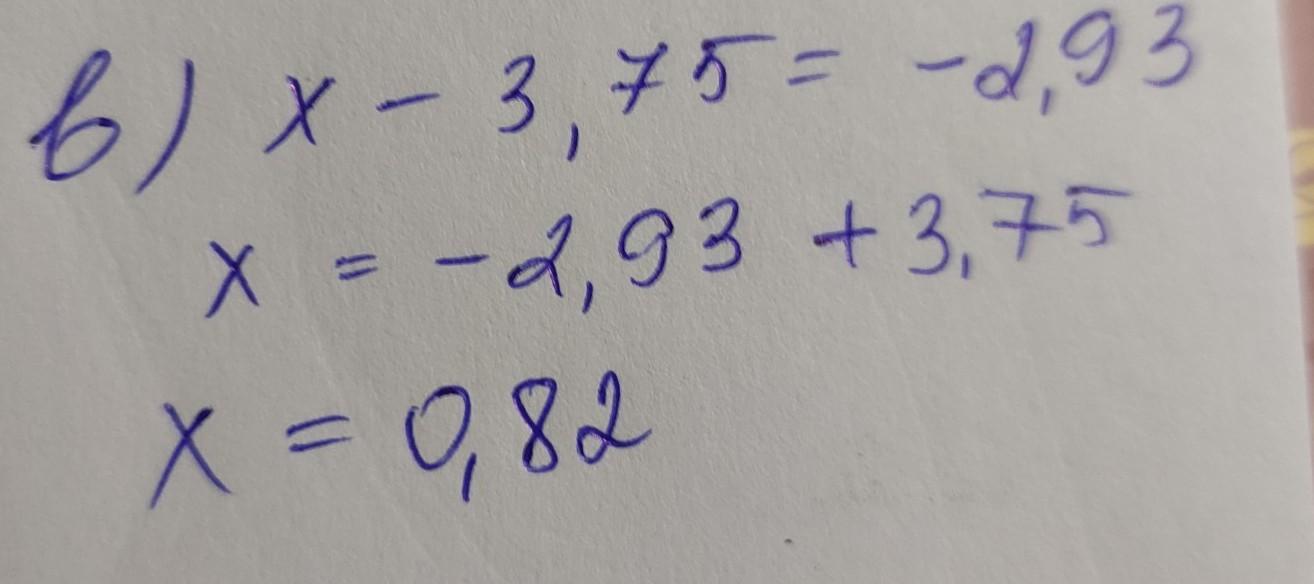 в) x - 3,75 = -2,93
x = -2,93 + 3,75
x = 0,82